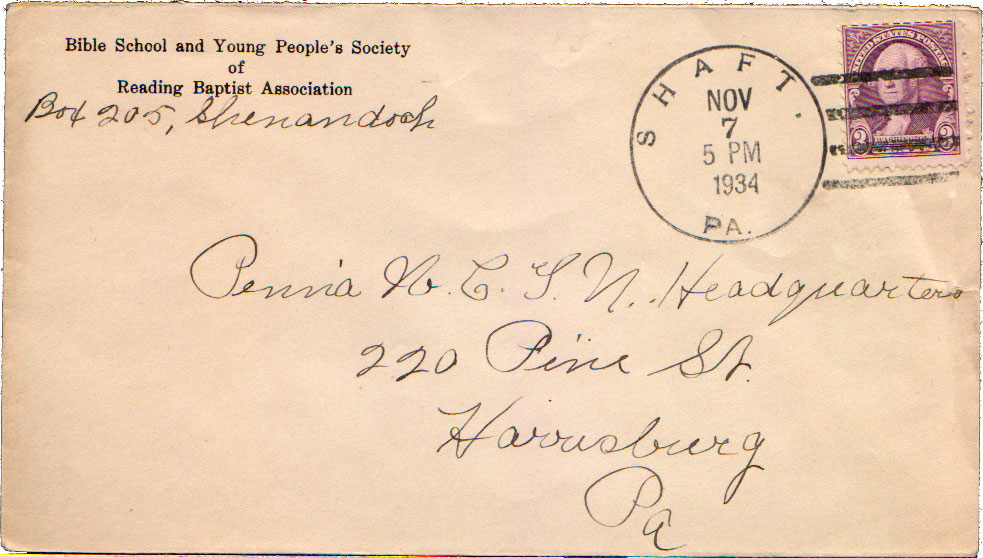 Bible School and Young People's Society
of
Reading Baptist Association
Box 205, Shenandoah
SHAFT.
NOV
7
5 PM
1934
PA.
UNITED STATES POSTAGE
3 3
Penn'a W. C. T. U. Headquarters
220 Pine St.
Harrisburg
Pa